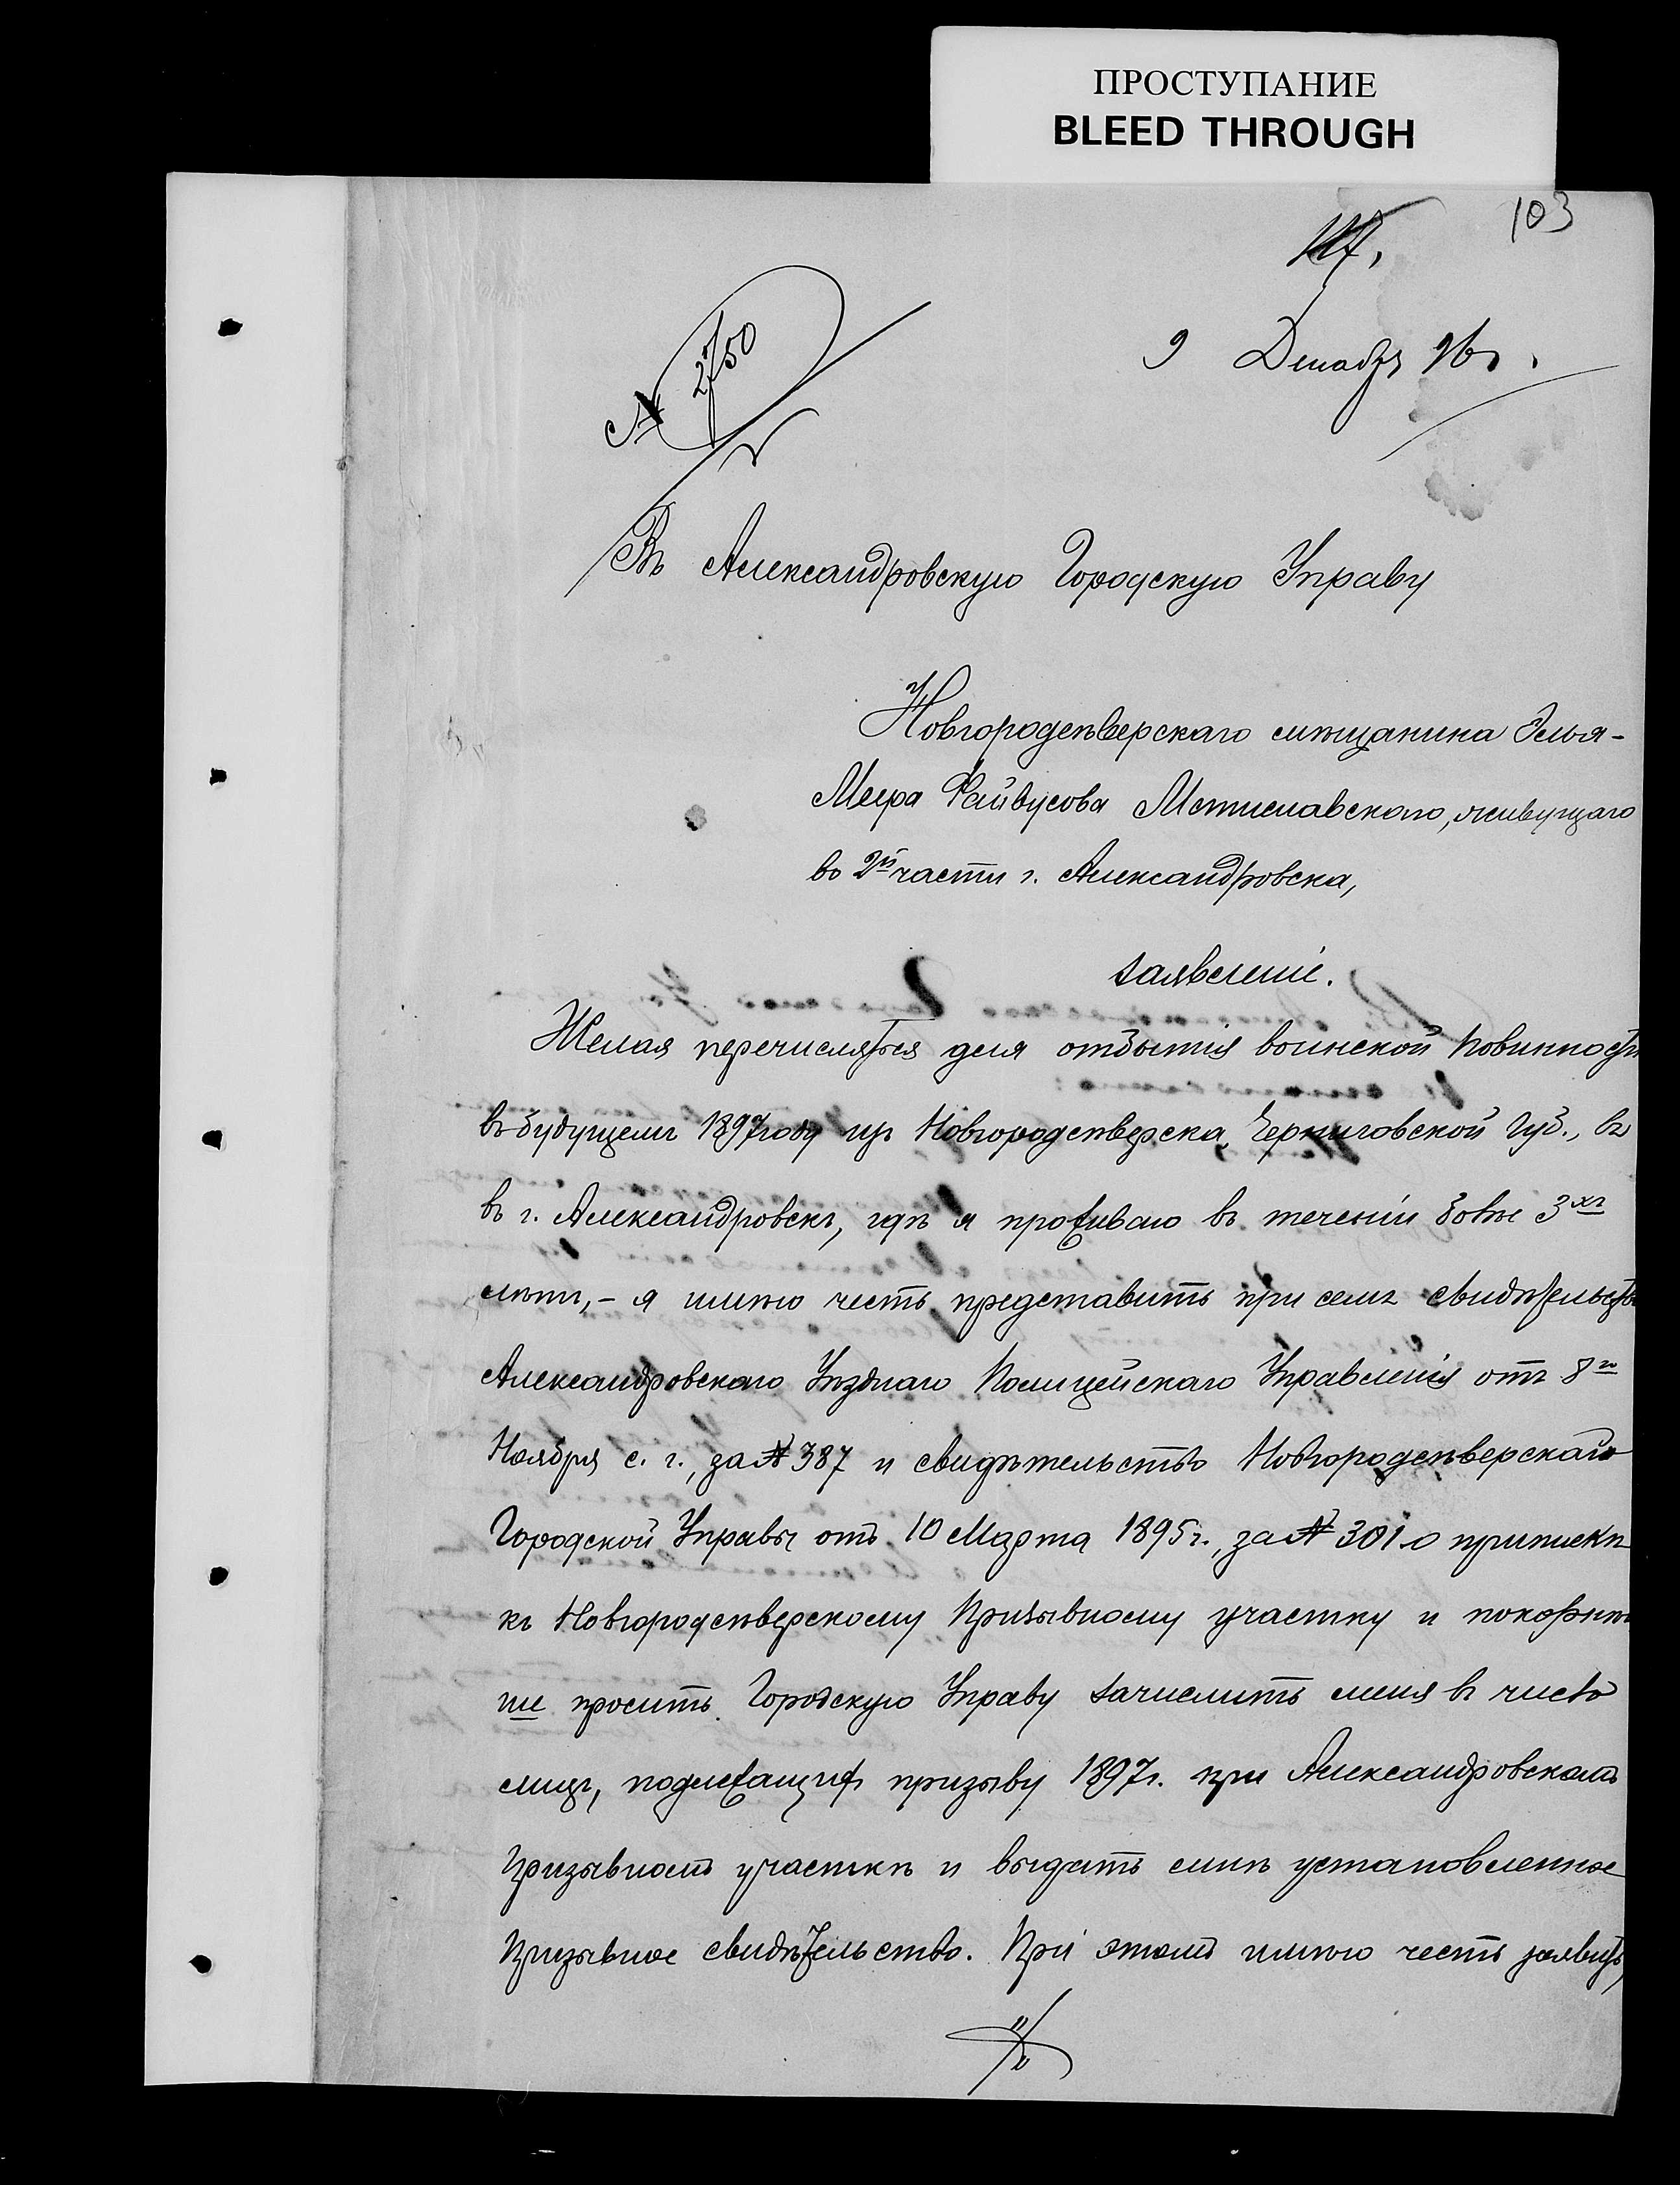 ПРОСТУПАНИЕ
BLEED THROUGH
103
№ 2750
9 Декабр 96 г.
Въ Александровскую Городскую Управу
Новгородсѣверскаго мѣщанина Эльи-
Меера Файвусова Мстиславского, живущаго
во 2й части г. Александровска,
заявленіе.
Желая перечисляться для отбытія воинской повинности
въ будущемъ 1897 году изъ Новгородсѣверска, Черниговской Губ., въ
въ г. Александровскъ, гдѣ я проживаю въ теченіи болѣе 3хъ
лѣтъ, – я имѣю честь представить при семъ свидѣтельство
Александровскаго Уѣзднаго Полицейскаго Управленія отъ 8го
Ноября с. г., за № 387 и свидѣтельство Новгородсѣверскаго
Городской Управы отъ 10 Марта 1895 г., за № 301 о припискѣ
къ Новгородсѣверскому Призывному участку и покорнѣй
ше просить Городскую Управу зачислить меня въ число
лицъ, подлежащихъ призыву 1897 г. при Александровскомъ
Призывномъ участкѣ и выдать мнѣ установленное
Призывное свидѣтельство. При этомъ имѣю честь заявить,